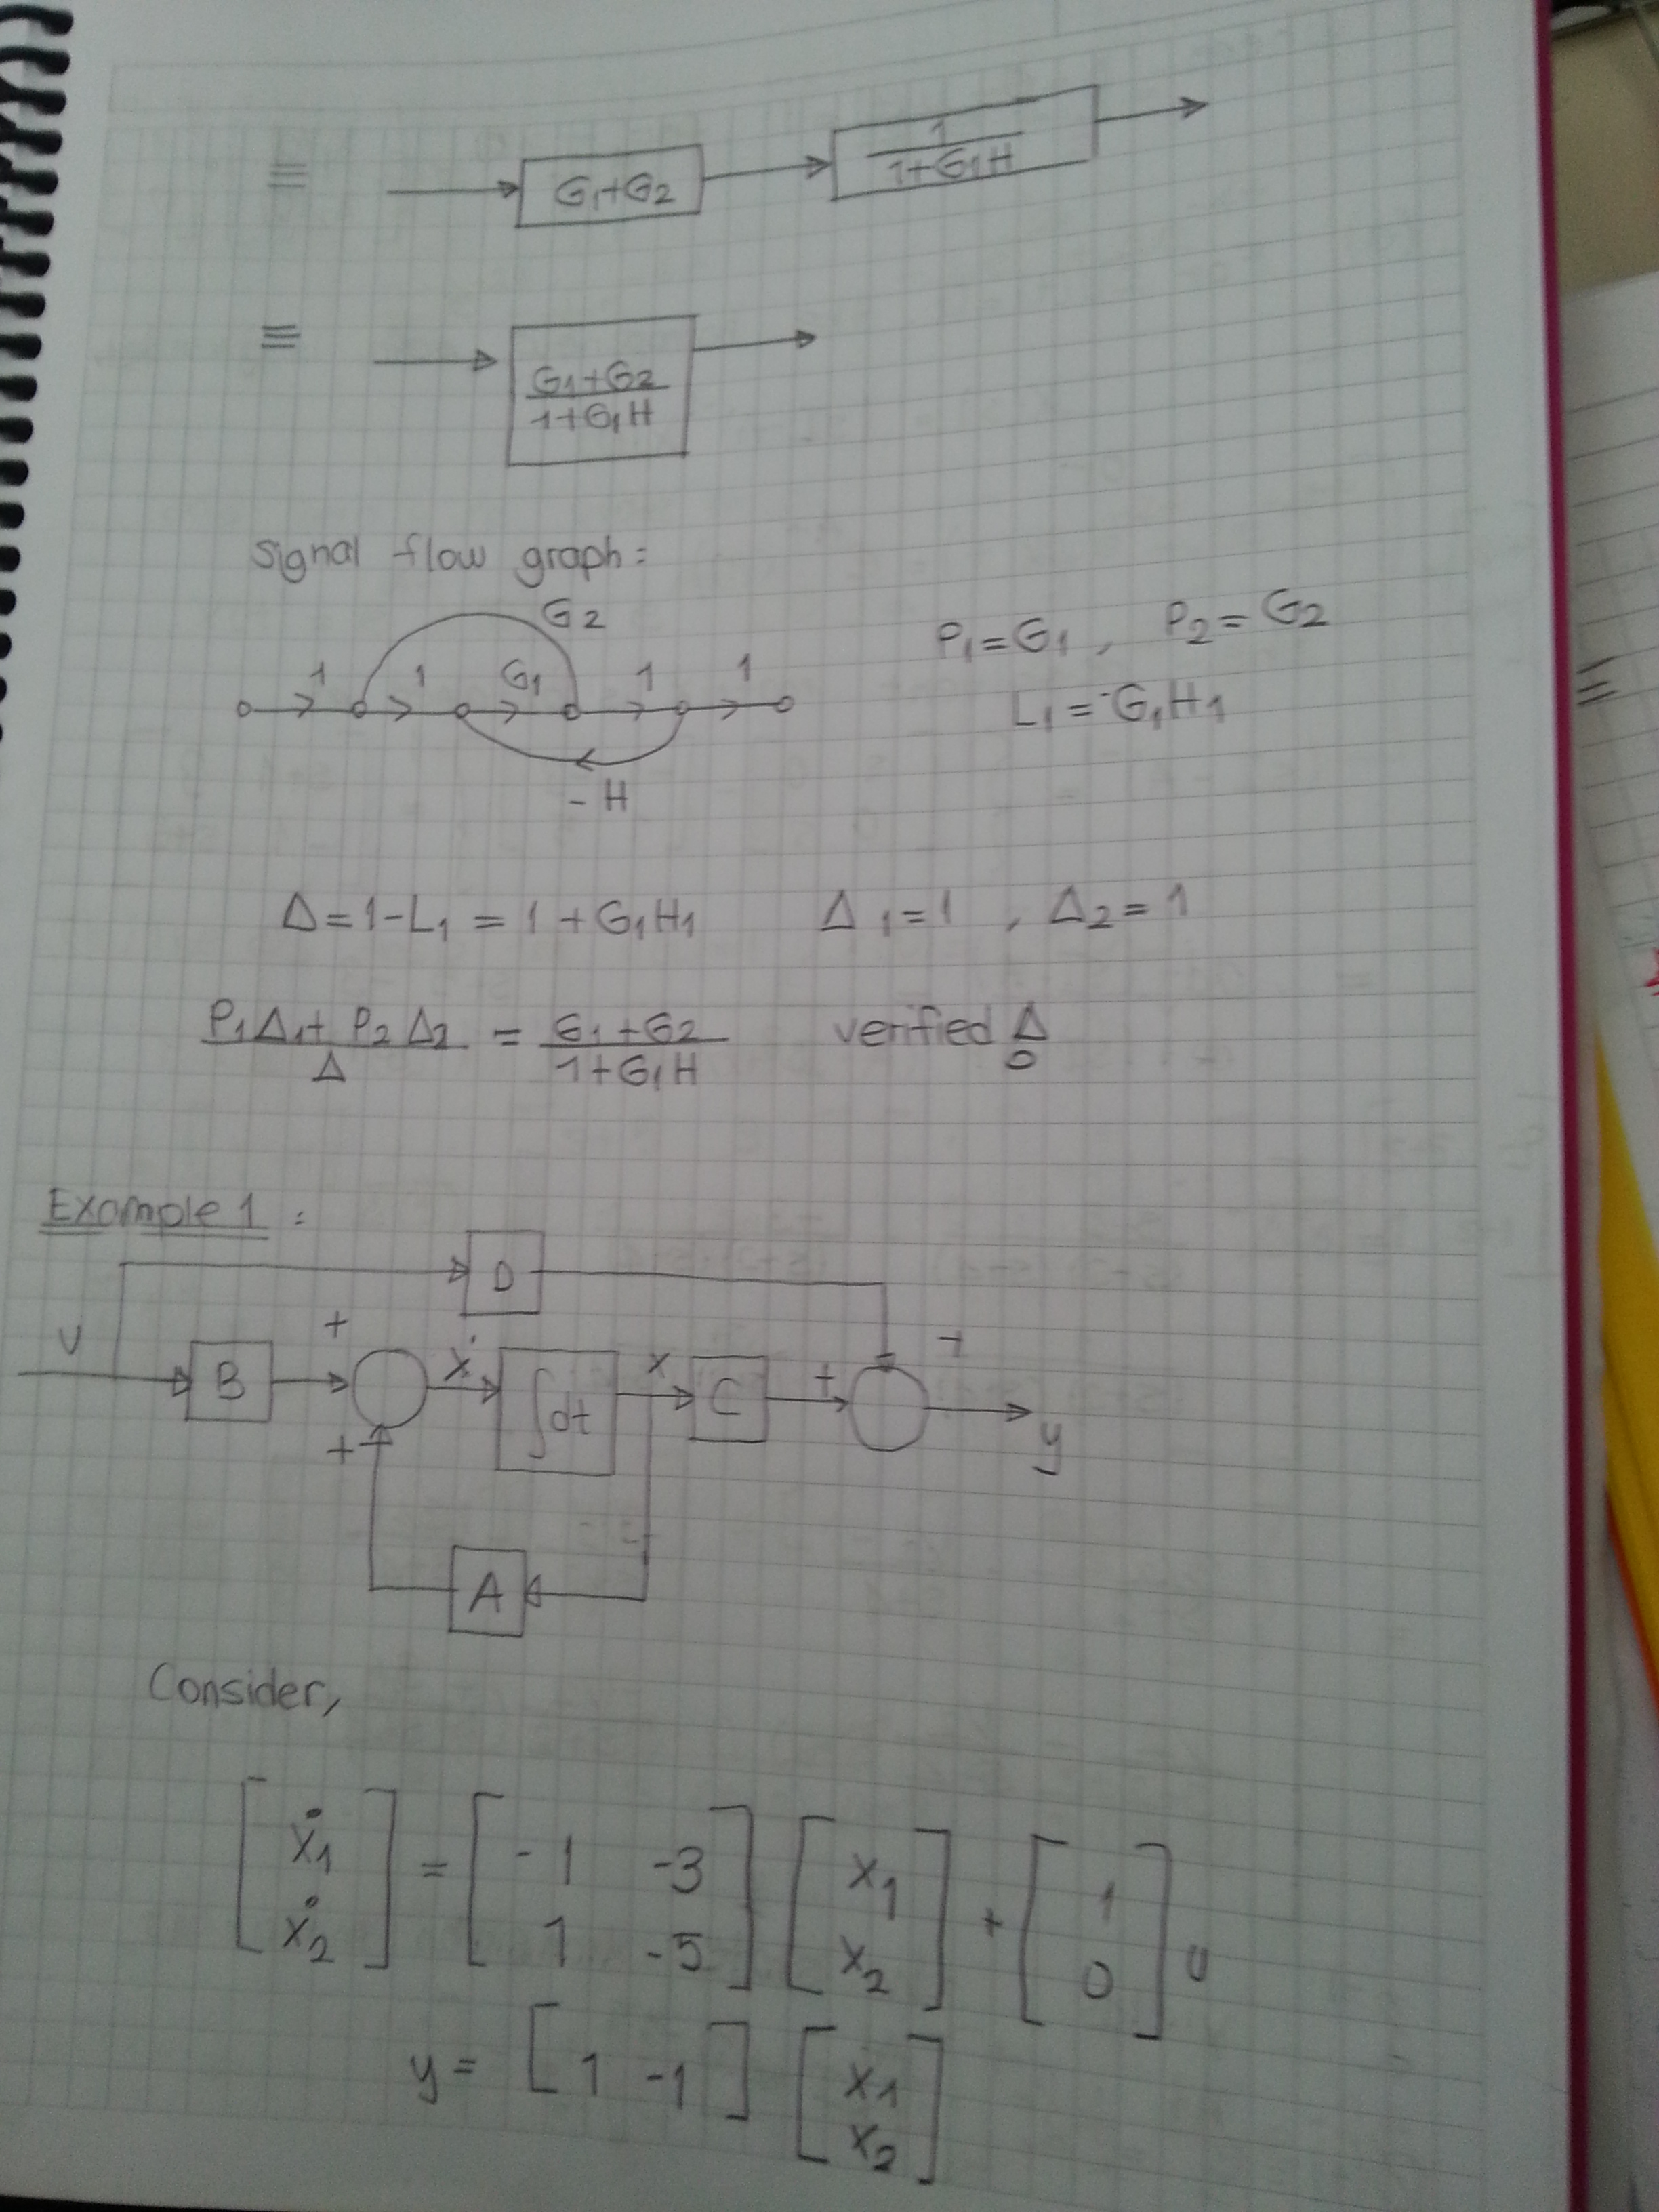 ≡ G1+G2 1/(1+G1H)
≡ (G1+G2)/(1+G1H)
Signal flow graph:
G2
1 1 G1 1 1
-H
P1=G1, P2=G2
L1=-G1H1
Δ=1-L1=1+G1H1 Δ1=1, Δ2=1
(P1Δ1+P2Δ2)/Δ = (G1+G2)/(1+G1H) verified
Example 1:
D
U B + + ẋ ∫dt x C + + y
A
Consider,
[ẋ1 ẋ2] = [-1 -3 1 -5] [x1 x2] + [1 0] u
y = [1 -1] [x1 x2]